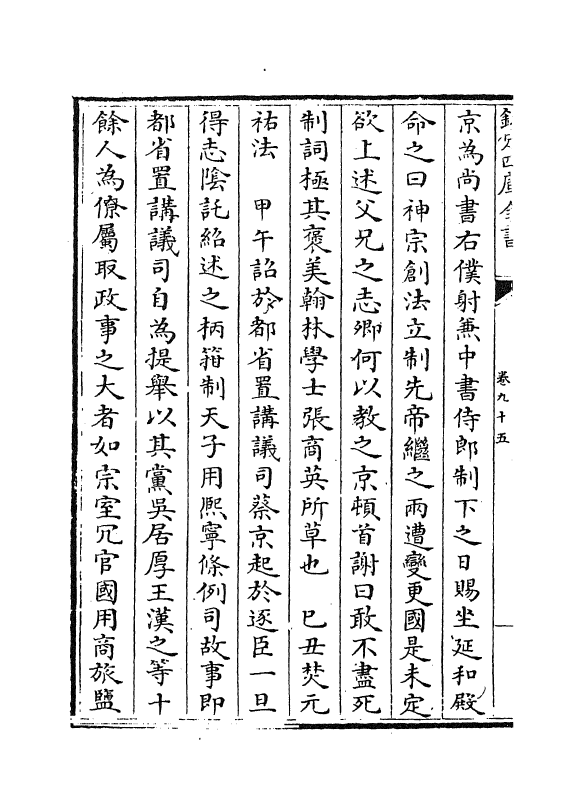 欽定四庫全書
卷九十五
京為尚書右僕射兼中書侍郎制下之日賜坐延和殿
命之曰神宗創法立制先帝繼之兩遭變更國是未定
欲上述父兄之志卿何以教之京頓首謝曰敢不盡死
制詞極其褒美翰林學士張商英所草也　已丑焚元
祐法　甲午詔於都省置講議司蔡京起於逐臣一旦
得志陰託紹述之柄箝制天子用熈寧條例司故事即
都省置講議司自為提舉以其黨吳居厚王漢之等十
餘人為僚屬取政事之大者如宗室冗官國用商旅鹽